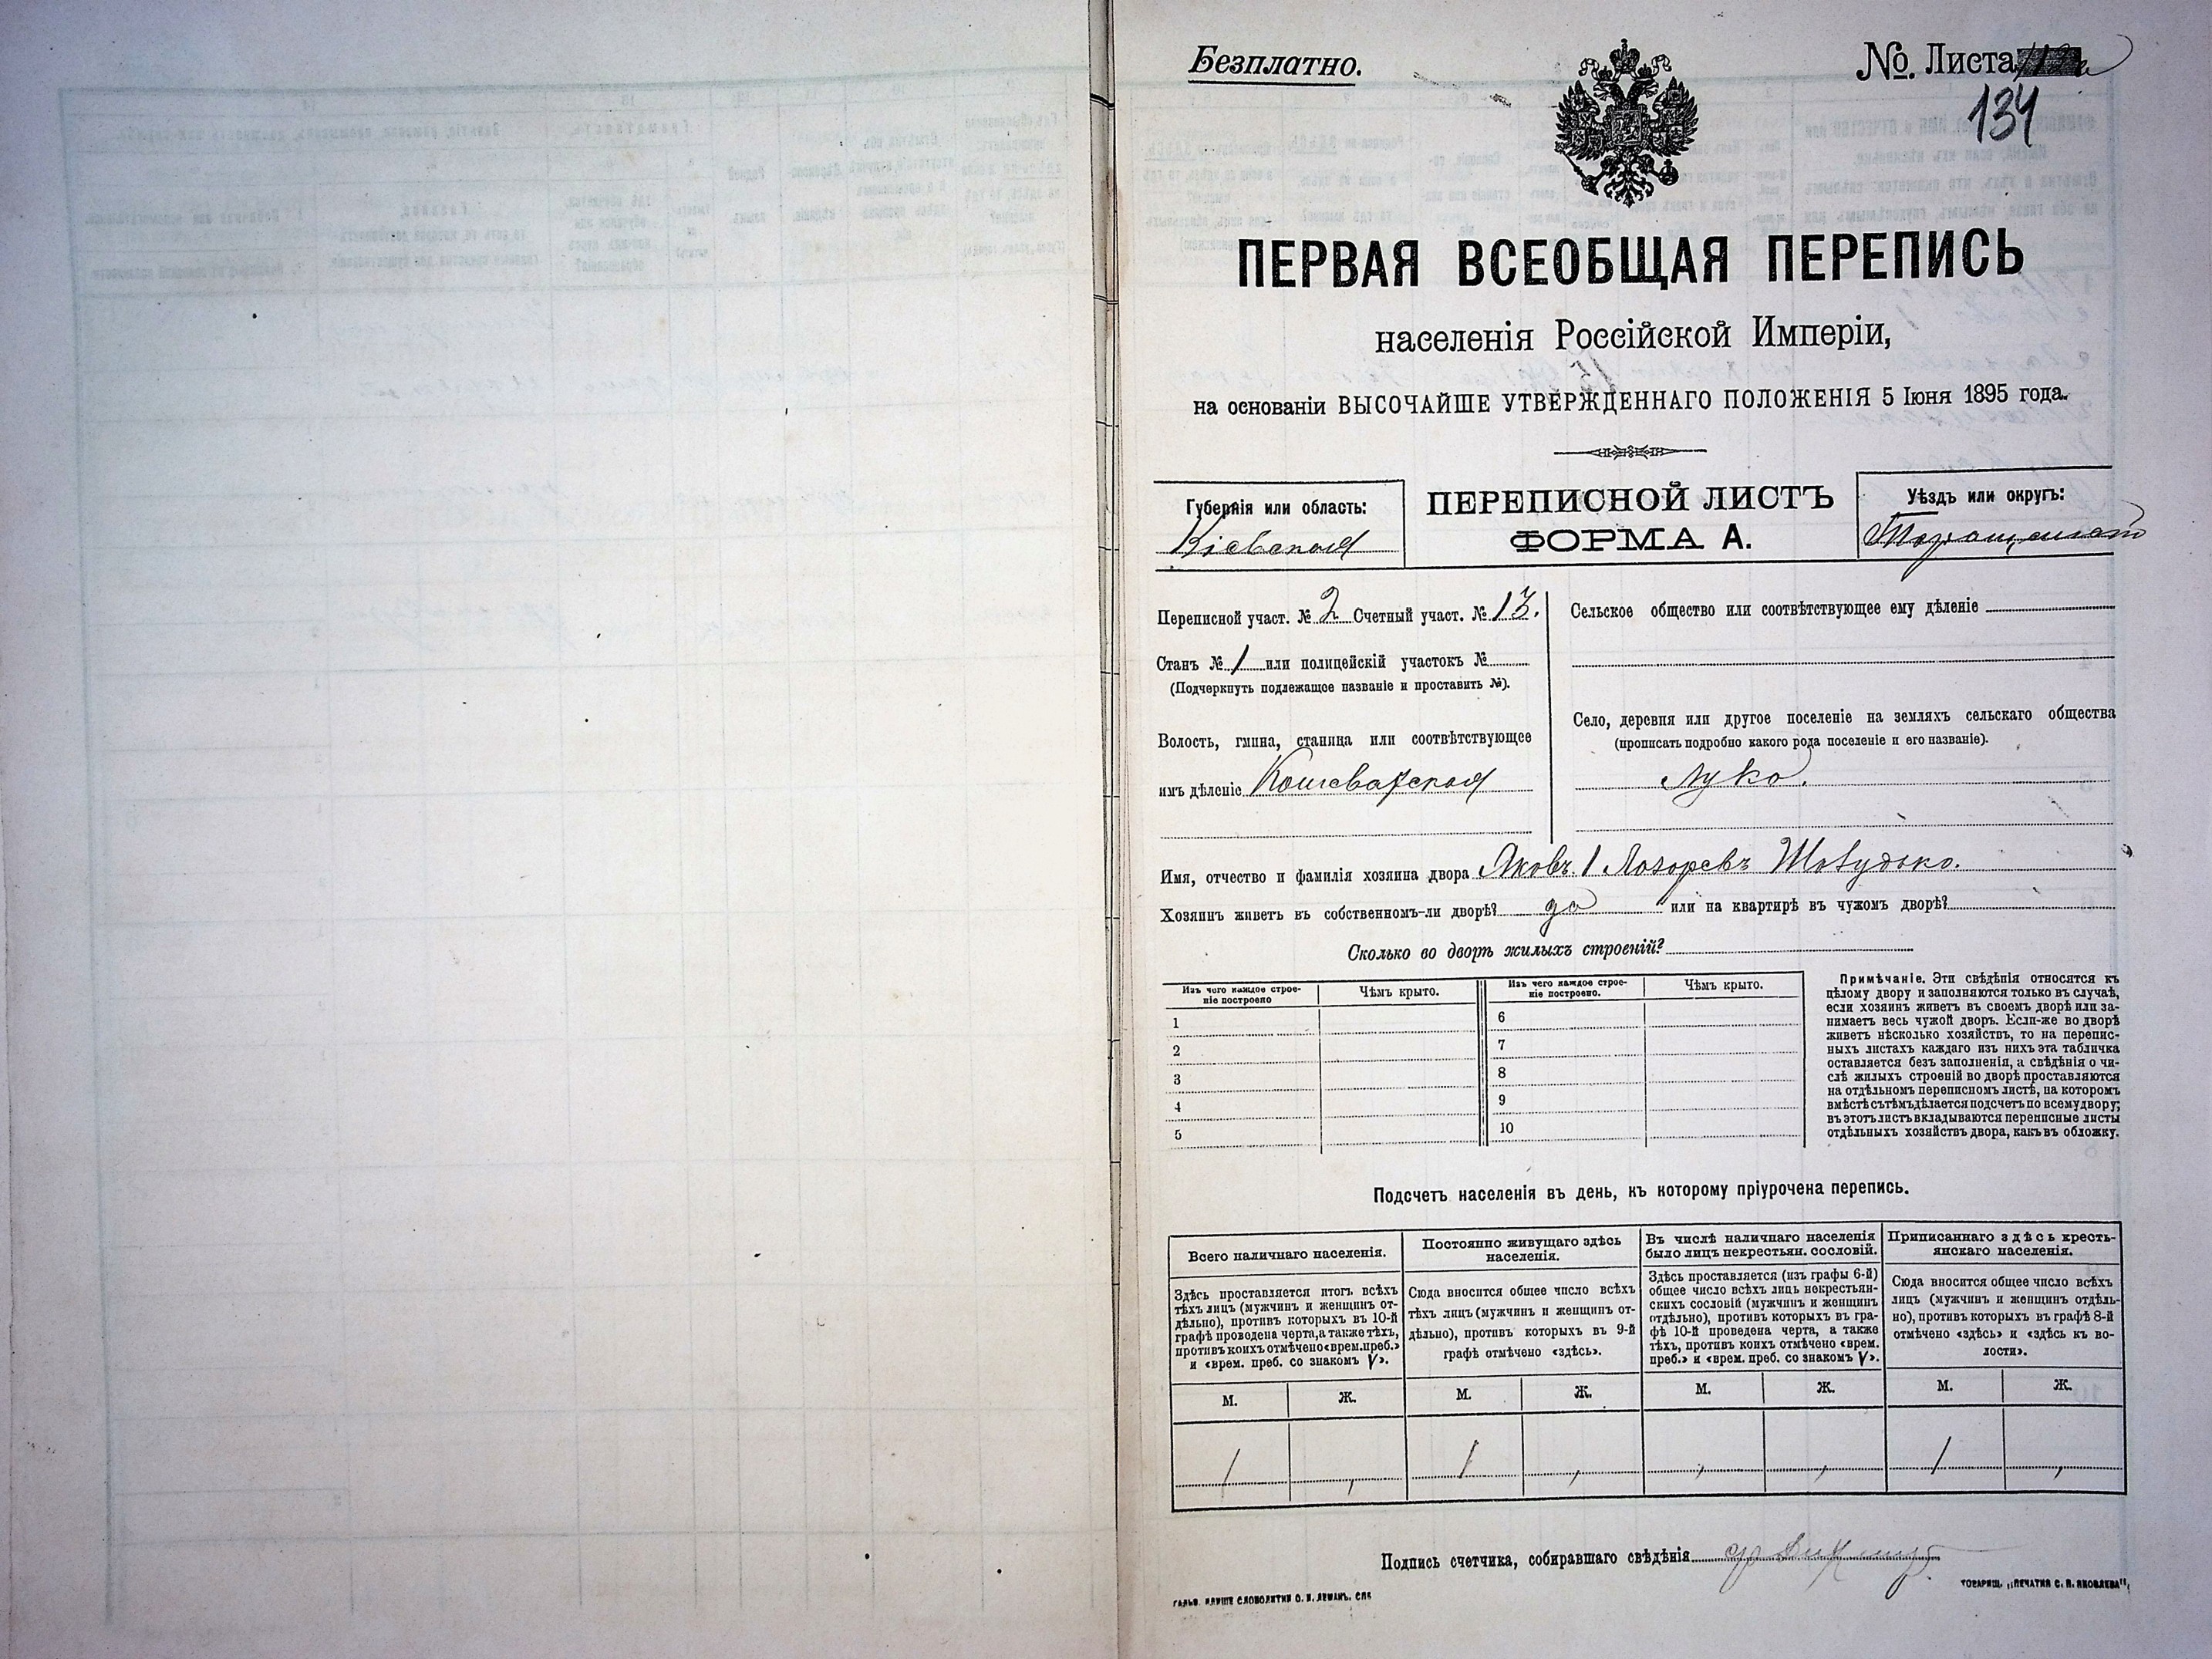 Безплатно.
№. Листа
134
ПЕРВАЯ ВСЕОБЩАЯ ПЕРЕПИСЬ
населенія Россійской Имперіи,
на основаніи ВЫСОЧАЙШЕ УТВЕРЖДЕННАГО ПОЛОЖЕНІЯ 5 Іюня 1895 года.
Губернія или область:
Кіевская
ПЕРЕПИСНОЙ ЛИСТЪ
ФОРМА А.
Уѣздъ или округъ:
Таращанскій
Переписной участ. № 2 Счетный участ. № 13.
Станъ № 1 или полицейскій участокъ №
(Подчеркнуть подлежащое названіе и проставить №).
Волость, гмина, станица или соотвѣтствующее
имъ дѣленіе Кошеватская
Сельское общество или соотвѣтствующее ему дѣленіе
Село, деревня или другое поселеніе на земляхъ сельскаго общества
(прописать подробно какого рода поселеніе и его названіе).
Лука.
Имя, отчество и фамилія хозяина двора Яковъ Лазаревъ
Хозяинъ живетъ въ собственномъ-ли дворѣ? да или на квартирѣ въ чужомъ дворѣ?
Сколько во дворѣ жилыхъ строеній?
Изъ чего каждое строе-
ніе построено
Чѣмъ крыто.
1
2
3
4
5
Изъ чего каждое строе-
ніе построено.
Чѣмъ крыто.
6
7
8
9
10
Примѣчаніе. Эти свѣдѣнія относятся къ
цѣлому двору и заполняются только въ случаѣ,
если хозяинъ живетъ въ своемъ дворѣ или за-
нимаетъ весь чужой дворъ. Если-же во дворѣ
живетъ нѣсколько хозяйствъ, то на перепис-
ныхъ листахъ каждаго изъ нихъ эта табличка
оставляется безъ заполненія, а свѣдѣнія о чи-
слѣ жилыхъ строеній во дворѣ проставляются
на отдѣльномъ переписномъ листѣ, на которомъ
вмѣстѣ съ тѣмъ дѣлается подсчетъ по всему двору;
въ этотъ листъ вкладываются переписные листы
отдѣльныхъ хозяйствъ двора, какъ въ обложку.
Подсчетъ населенія въ день, къ которому пріурочена перепись.
Всего наличнаго населенія.
Здѣсь проставляется итогъ всѣхъ
тѣхъ лицъ (мужчинъ и женщинъ от-
дѣльно), противъ которыхъ въ 10-й
графѣ проведена черта, а также тѣхъ,
противъ коихъ отмѣчено «врем. преб.»
и «врем. преб. со знакомъ V».
М. Ж.
1
Постоянно живущаго здѣсь
населенія.
Сюда вносится общее число всѣхъ
тѣхъ лицъ (мужчинъ и женщинъ от-
дѣльно), противъ которыхъ въ 9-й
графѣ отмѣчено «здѣсь».
М. Ж.
1
Въ числѣ наличнаго населенія
было лицъ некрестьян. сословій.
Здѣсь проставляется (изъ графы 6-й)
общее число всѣхъ лицъ некрестьян-
скихъ сословій (мужчинъ и женщинъ
отдѣльно), противъ которыхъ въ гра-
фѣ 10-й проведена черта, а также
тѣхъ, противъ коихъ отмѣчено «врем.
преб.» и «врем. преб. со знакомъ V».
М. Ж.
Приписаннаго здѣсь кресть-
янскаго населенія.
Сюда вносится общее число всѣхъ
лицъ (мужчинъ и женщинъ отдѣль-
но), противъ которыхъ въ графѣ 8-й
отмѣчено «здѣсь» и «здѣсь къ во-
лости».
М. Ж.
1
Подпись счетчика, собиравшаго свѣдѣнія
ГАЛЬВ. КЛИШЕ СЛОВОЛИТНИ О. И. ЛЕМАНЪ. СПБ
ТОВАРИЩ. „ПЕЧАТНЯ С. П. ЯКОВЛЕВА“